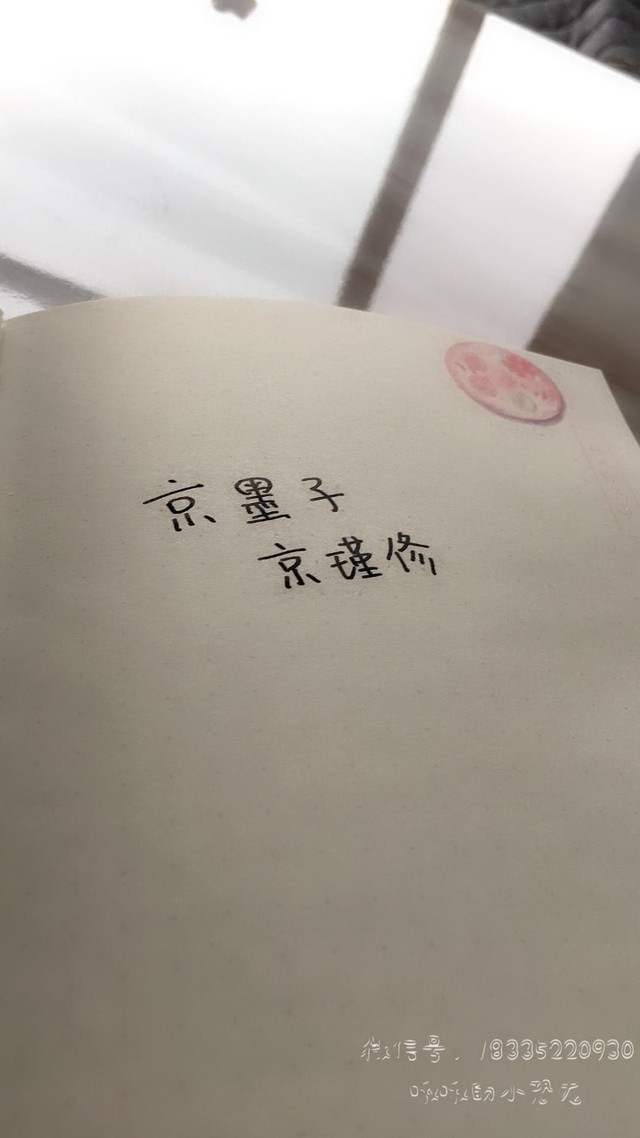 京墨子
京瑾修
微信号：18335220930
哌哌的小恐龙